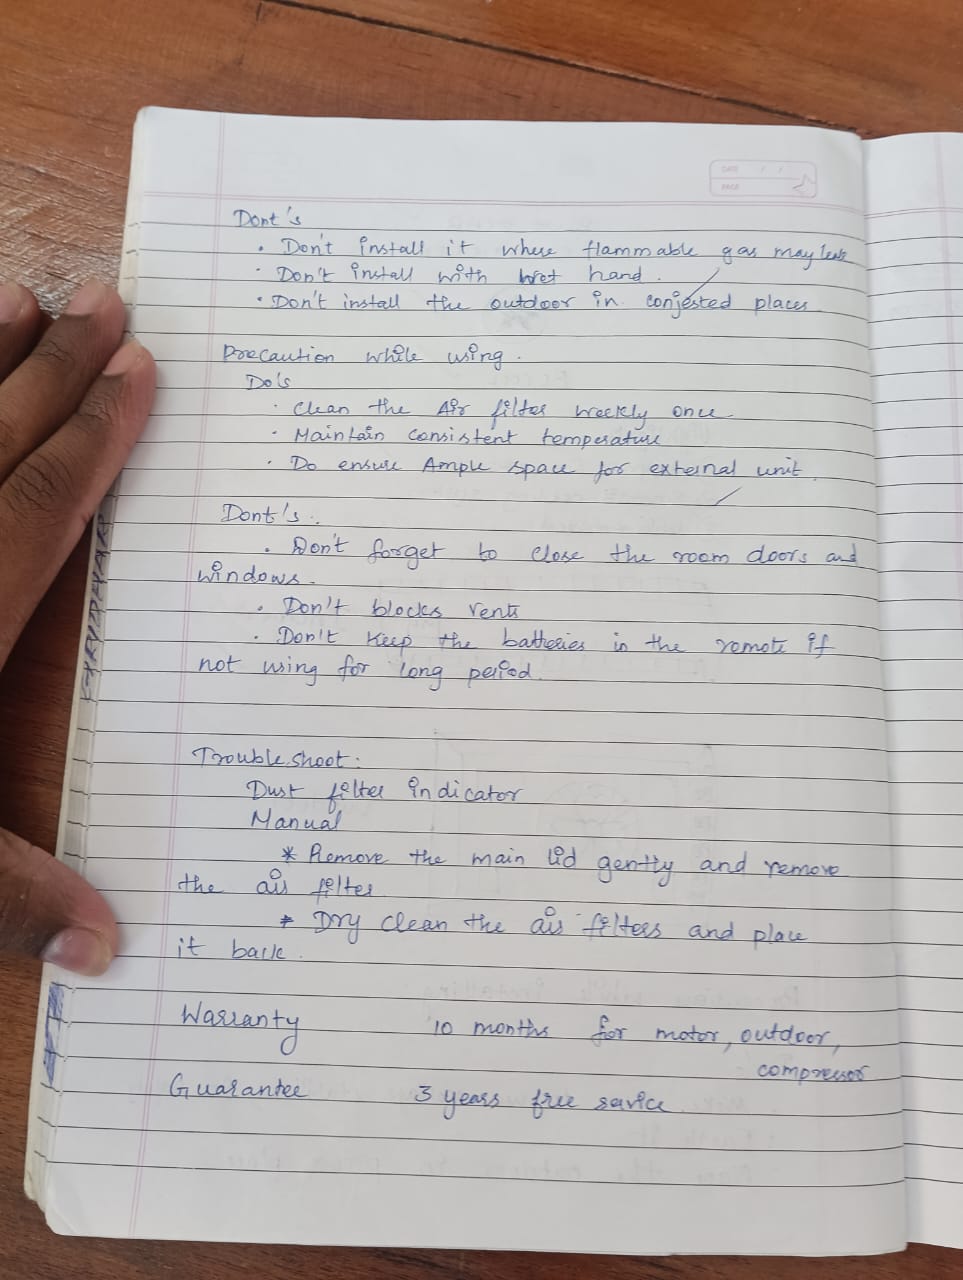 DATE / /
PAGE
Dont's
• Don't install it where flammable gas may leak
• Don't install with wet hand.
• Don't install the outdoor in conjested places
Precaution while using.
Do's
• Clean the Air filter weekly once
• Maintain consistent temperature
• Do ensure Ample space for external unit.
Dont's:
• Don't forget to close the room doors and
windows.
• Don't blocks vents
• Don't keep the batteries in the remote if
not using for long period.
Trouble shoot:
Dust filter indicator
Manual
* Remove the main lid gently and remove
the air filter
* Dry clean the air filters and place
it back.
Warranty 10 months for motor, outdoor,
compressor
Guarantee 3 years free service